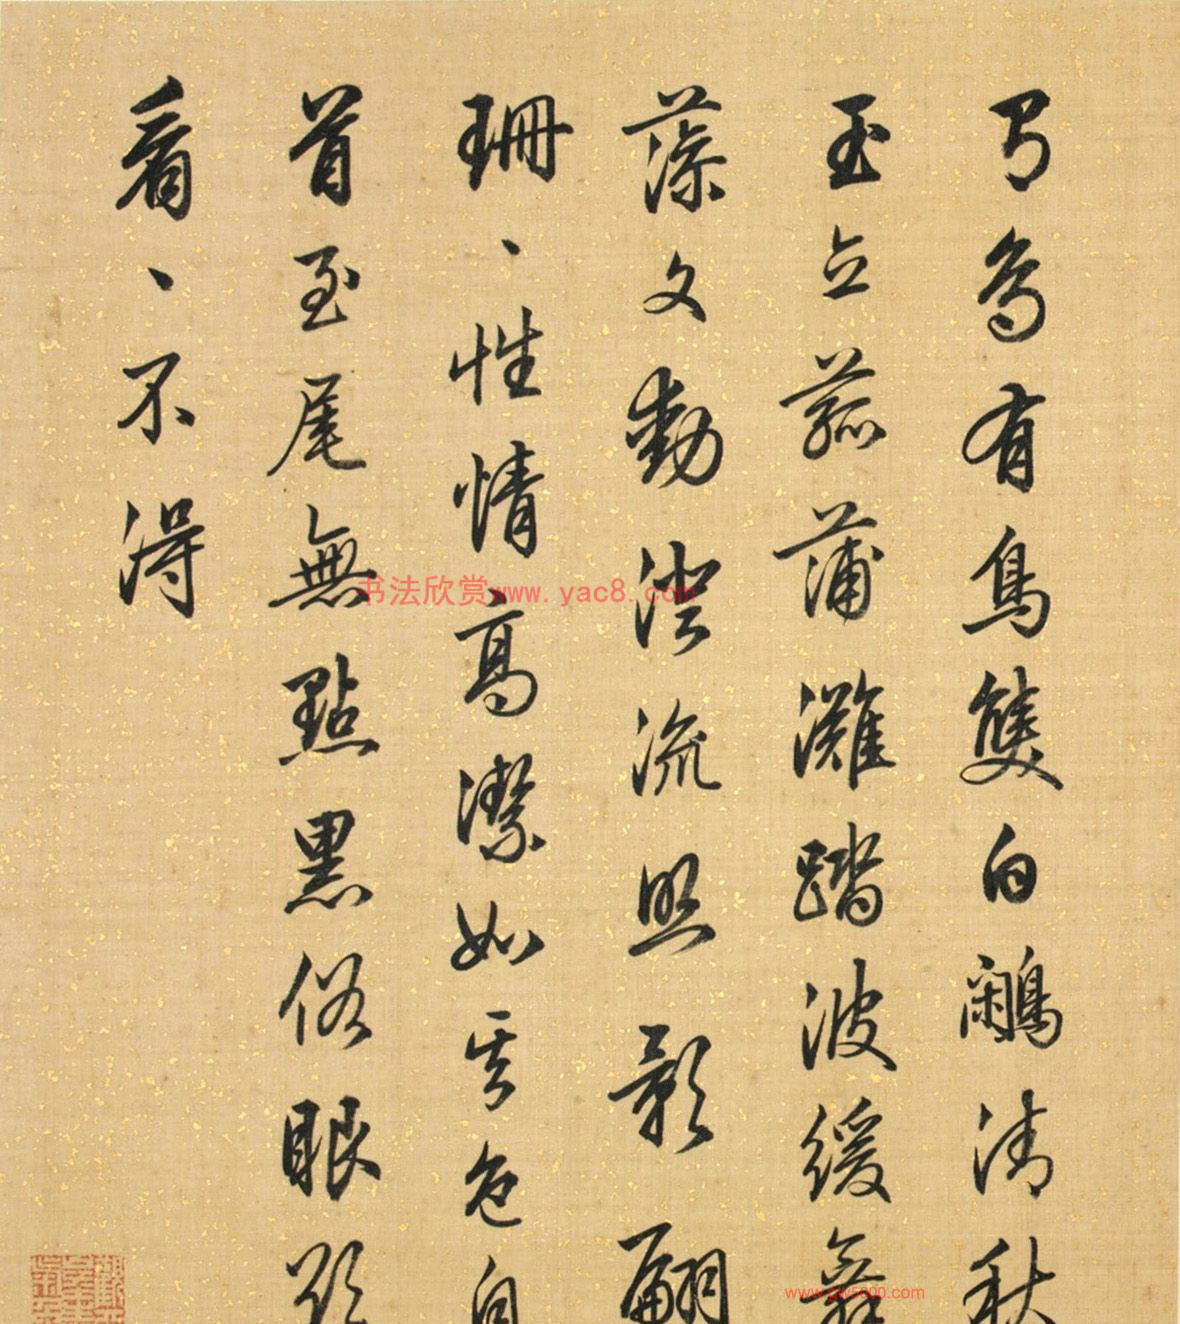 有鳥有鳥雙白鷴清秋
玉立菰蒲灘踏波緩舞
藻文動澄流照影翩
珊、性情高潔如其色自
首至尾無點黑俗眼欲
看、不得
书法欣赏www.yac8.com
www.gw5000.com